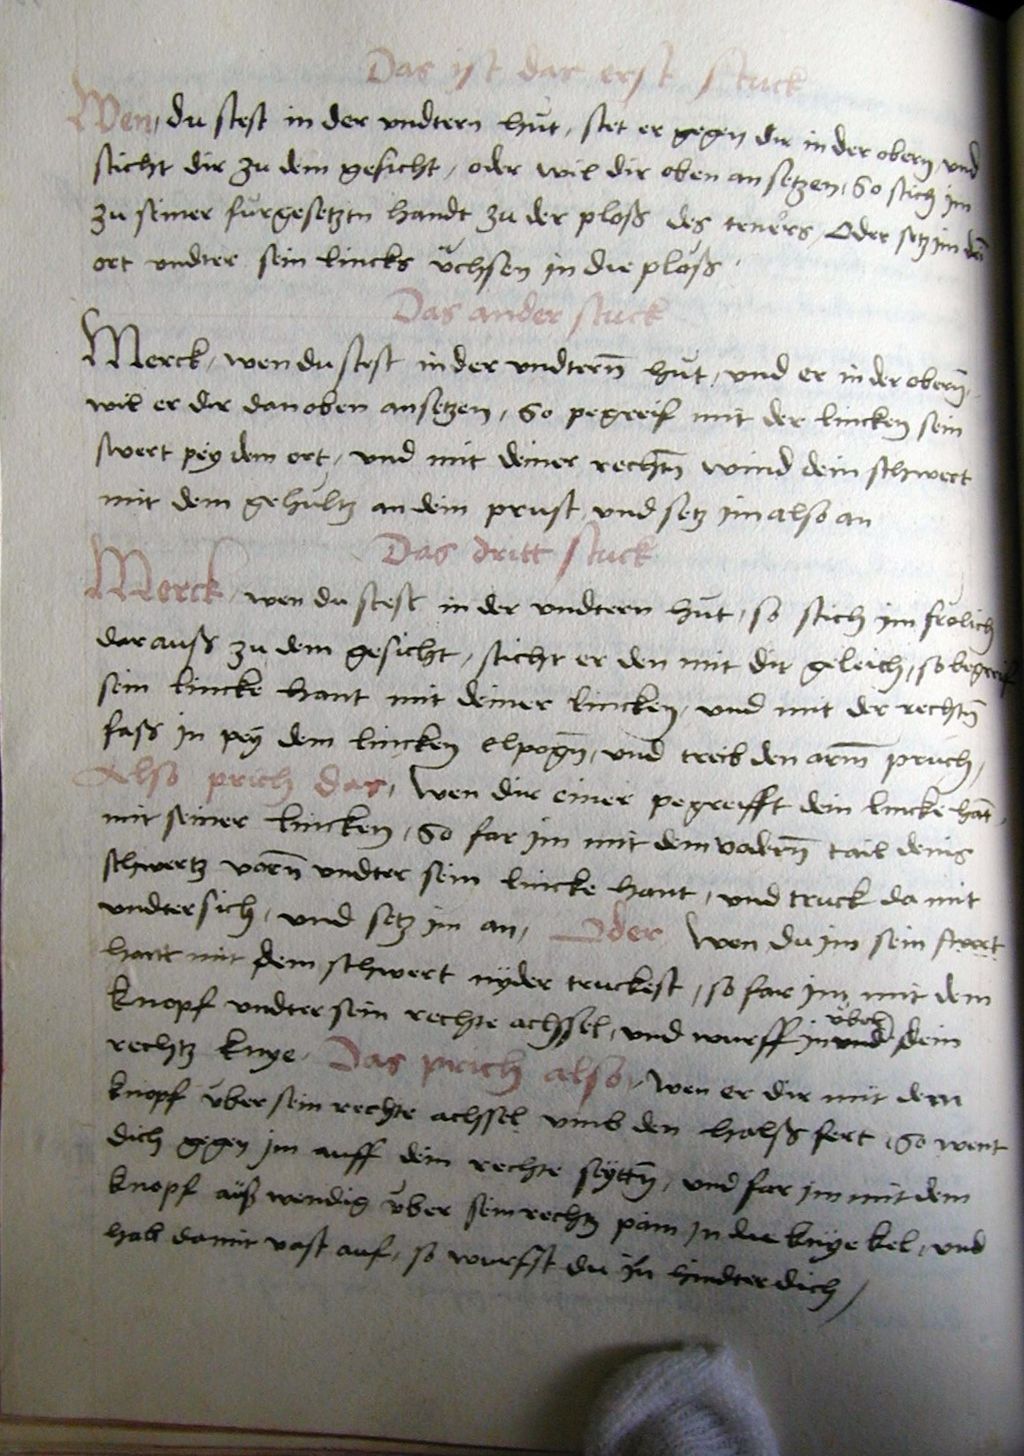 Das ist das erst stuck
Wen du stest in der vndtern hůt, stet er gegen dir in der obern, vnd
sticht dir zu dem gesicht, oder wil dir oben an setzen, So stich im
zu seiner furgesetztn handt zu der ploss des teners, Oder setz im den
ort vndter sein lincks v̈chsen in die ploss
Das ander stuck
Merck, wen du stest in der vndtern̄ hůt, vnd er in der obern̄,
wil er dir dan oben ansetzen, So pegreif mit der lincken sein
swert pey dem ort, vnd mit deiner rechtn̄ wind dein schwert
mit dem gehultz an dein prust, vnd setz im also an
Das dritt stuck
Merck, wen du stest in der vndtern hůt, so stich im frölich
dar auss zu dem gesicht, sticht er den mit dir geleich, so begreif
sein lincke hant mit deiner lincken, vnd mit der rechtn̄
fass in peÿ dem lincken elpogn̄, vnd treib den arm̄ pruch,
Also prich das, Wen dir einer pegreifft dein lincke hāt,
mit seiner lincken, So far im mit dem vodern̄ tail deins
schwertz vorn̄ vndter sein lincke hant, vnd truck da mit
vndtersich, vnd setz im an, Oder Wen du im sein swert
hant mit dem schwert nÿder truckest, so far im mit dem
knopf vndter sein rechte achssel, vnd wurff in vnd vber dein
rechtz knye, Das prich also, Wen er dir mit dem
knopf vber sein rechte achssel vmb den halss fert, So went
dich gegen im auff dein rechte seÿttn̄, vnd far im mit dem
knopf ausswendig v̈ber sein rechtz pain in die knÿekel, vnd
hab damit vast auf, so wurfst du in hindter dich,